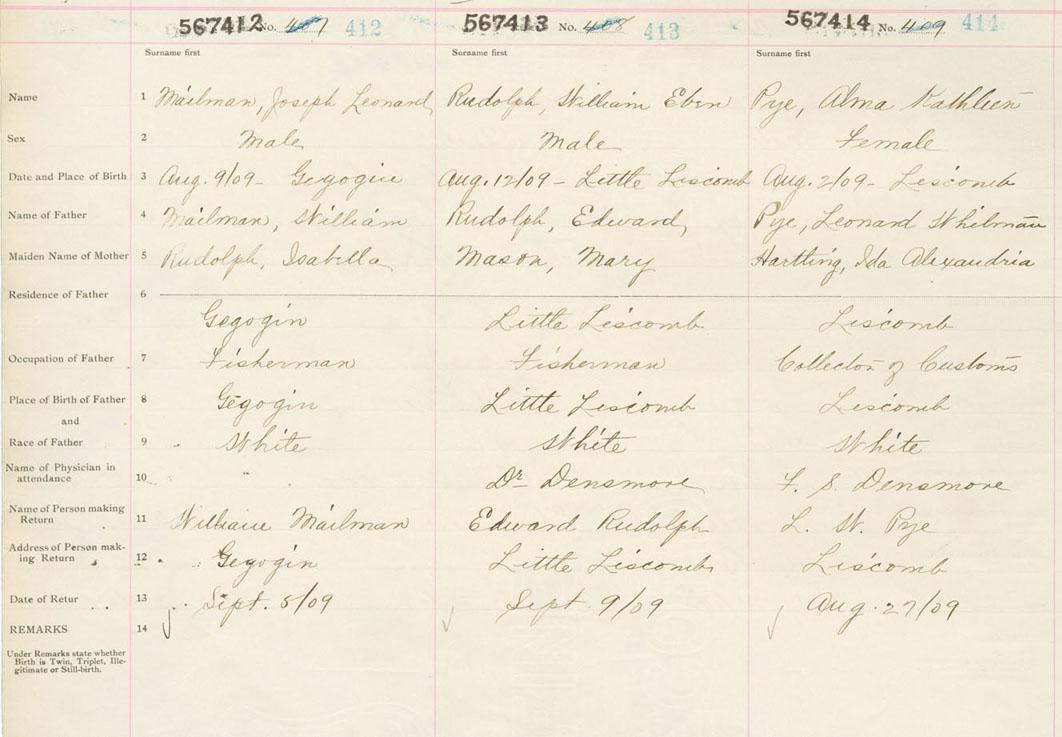 567412 No. 407 412 567413 No. 408 413 567414 No. 409 414
Surname first Surname first Surname first
Name 1 Mailman, Joseph Leonard Rudolph, William Eben Pye, Alma Kathleen
Sex 2 Male Male Female
Date and Place of Birth 3 Aug. 9/09 - Gegogin Aug. 12/09 - Little Liscomb Aug. 2/09 - Liscomb
Name of Father 4 Mailman, William Rudolph, Edward Pye, Leonard Whilman
Maiden Name of Mother 5 Rudolph, Isabella Mason, Mary Hartling, Ida Alexandria
Residence of Father 6
Gegogin Little Liscomb Liscomb
Occupation of Father 7 Fisherman Fisherman Collector of Customs
Place of Birth of Father 8 Gegogin Little Liscomb Liscomb
and
Race of Father 9 White White White
Name of Physician in
attendance 10 Dr Densmore F. S. Densmore
Name of Person making
Return 11 William Mailman Edward Rudolph L. W. Pye
Address of Person mak-
ing Return 12 Gegogin Little Liscomb Liscomb
Date of Retur 13 Sept. 5/09 Sept. 9/09 Aug. 27/09
REMARKS 14
Under Remarks state whether
Birth is Twin, Triplet, Ille-
gitimate or Still-birth.